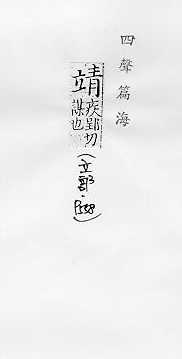 四聲篇海
靖疾郢切
謀也
(立部·P558)